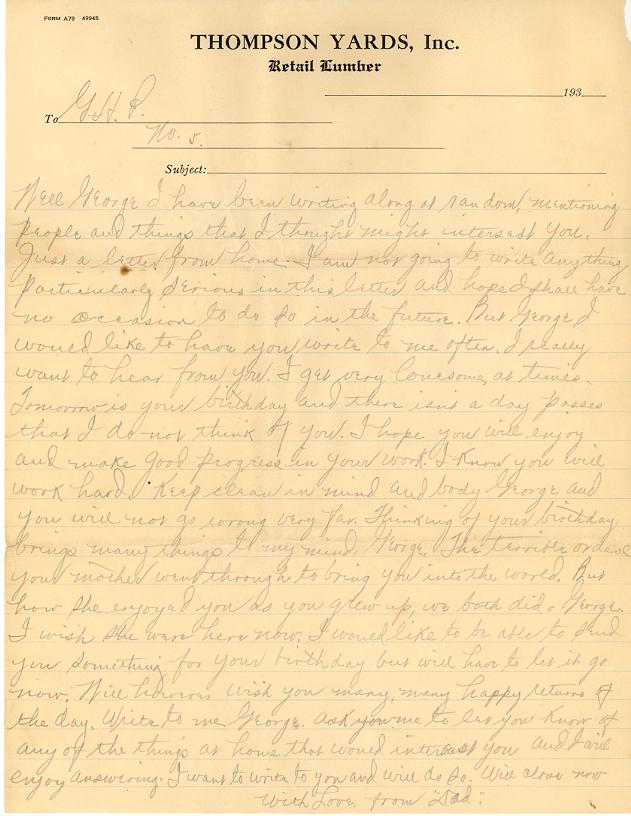 FORM A78 49945
THOMPSON YARDS, Inc.
Retail Lumber
193
To G.H.P.
No. 5.
Subject:
Well George I have been writing along at random, mentioning
people and things that I thought might interest you.
Just a letter from home. I am not going to write anything
particularly serious in this letter and hope I shall have
no occasion to do so in the future. But George, I
would like to have you write to me often. I really
want to hear from you. I get very lonesome, at times.
Tomorrow is your birthday and there isn't a day passes
that I do not think of you. I hope you will enjoy
and make good progress in your work. I know you will
work hard. Keep clean in mind and body George and
you will not go wrong very far. Thinking of your birthday
brings many things to my mind, George. The terrible ordeal
your mother went through to bring you into the world. But
how she enjoyed you as you grew up, we both did, George.
I wish she were here now. I would like to be able to send
you something for your birthday but will have to let it go
now. Will however wish you many, many happy returns of
the day. Write to me George. Ask me to let you know of
any of the things at home that would interest you and I will
enjoy answering. I want to write to you and will do so. Will close now
With Love, from "Dad".